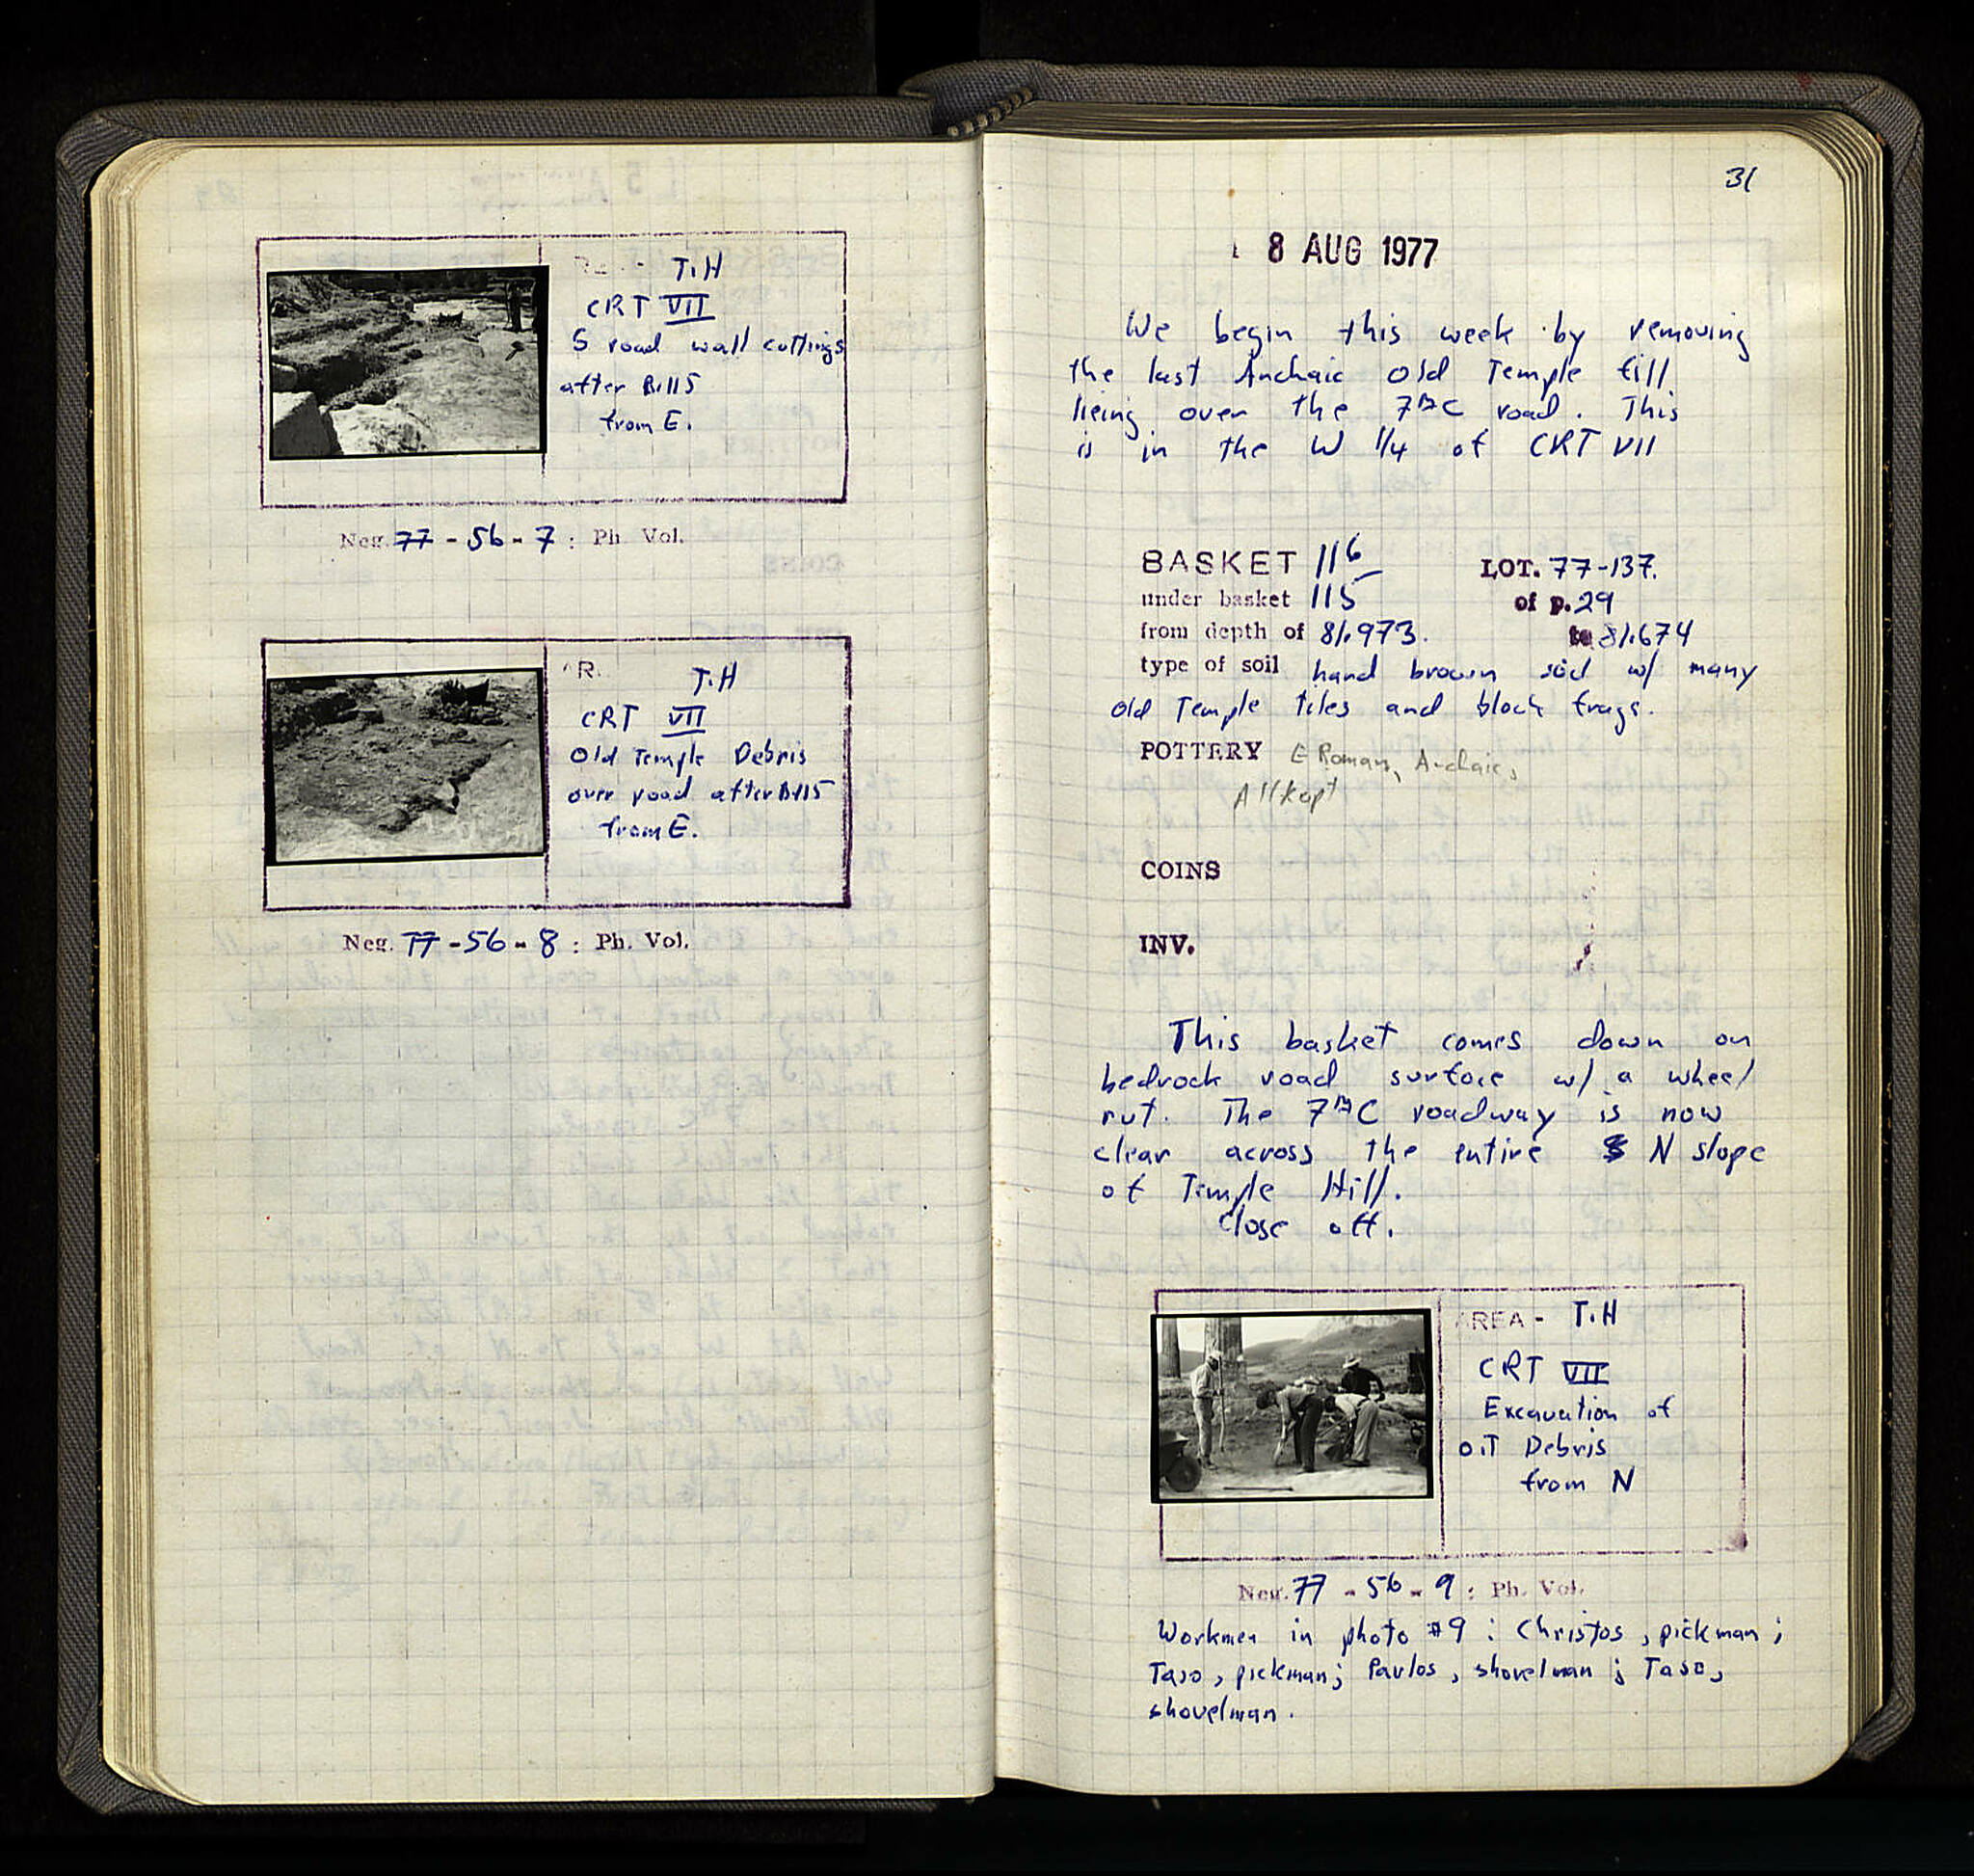 T.H
CRT VII
S road wall cuttings
after B115
from E.
Neg. 77-56-7: Ph. Vol.
T.H
CRT VII
Old Temple Debris
over road after B115
from E.
Neg. 77-56-8: Ph. Vol.
31
8 AUG 1977
We begin this week by removing
the last Archaic Old Temple fill
lieing over the 7thC road. This
is in the W 1/4 of CRT VII
BASKET 116 LOT. 77-137.
under basket 115 of p. 29
from depth of 81.973. to 81.674
type of soil hard brown soil w/ many
Old Temple tiles and block frags.
POTTERY E Roman, Archaic,
All kept
COINS
INV.
This basket comes down on
bedrock road surface w/ a wheel
rut. The 7thC roadway is now
clear across the entire N slope
of Temple Hill.
Close off.
AREA - T.H
CRT VII
Excavation of
O.T Debris
from N
Neg. 77-56-9: Ph. Vol.
Workmen in photo #9: Christos, pickman;
Taso, pickman; Pavlos, shovelman; Taso,
shovelman.